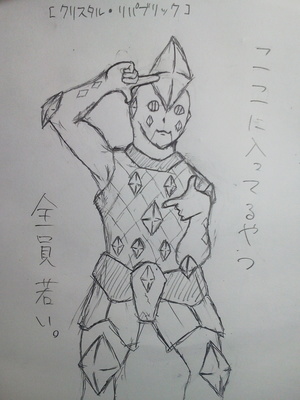 [クリスタル・リパブリック]
ここに入ってるやつ
全員若い。